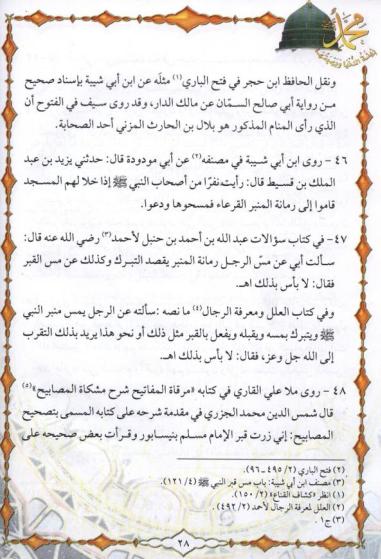 ونقل الحافظ ابن حجر في فتح الباري(١) مثلَه عن ابن أبي شيبة بإسناد صحيح
مـن رواية أبي صالح السمّان عن مالك الدار، وقد روى سيف في الفتوح أن
الذي رأى المنام المذكور هو بلال بن الحارث المزني أحد الصحابة.
٤٦ - روى ابن أبي شيبة في مصنفه(٢) عن أبي مودودة قال: حدثني يزيد بن عبد
الملك بن قسيط قال: رأيت نفرًا من أصحاب النبي ﷺ إذا خلا لهم المسجد
قاموا إلى رمانة المنبر القرعاء فمسحوها ودعوا.
٤٧- في كتاب سؤالات عبد الله بن أحمد بن حنبل لأحمد(٣) رضي الله عنه قال:
سـألت أبي عن مسّ الرجـل رمانة المنبر يقصد التبرك وكذلك عن مس القبر
فقال: لا بأس بذلك اهـ.
وفي كتاب العلل ومعرفة الرجال(٤) ما نصه :سألته عن الرجل يمس منبر النبي
ﷺ ويتبرك بمسه ويقبله ويفعل بالقبر مثل ذلك أو نحو هذا يريد بذلك التقرب
إلى الله جل وعز، فقال: لا بأس بذلك اهـ.
٤٨ - روى ملا علي القاري في كتابه «مرقاة المفاتيح شرح مشكاة المصابيح»(٥)
قال شمس الدين محمد الجزري في مقدمة شرحه على كتابه المسمى بتصحيح
المصابيح: إني زرت قبر الإمام مسـلم بنيسابور وقـرأت بعض صحيحه على
(٢) فتح الباري (٢/ ٤٩٥-٩٦).
(٣) مصنف ابن أبي شيبة: باب مس قبر النبي ﷺ (٤/ ١٢١).
(١) انظر «كشاف القناع» (٢/ ١٥٠).
(٢) العلل لمعرفة الرجال لأحمد (٢/ ٤٩٢).
(٣) ج١ .
٢٨